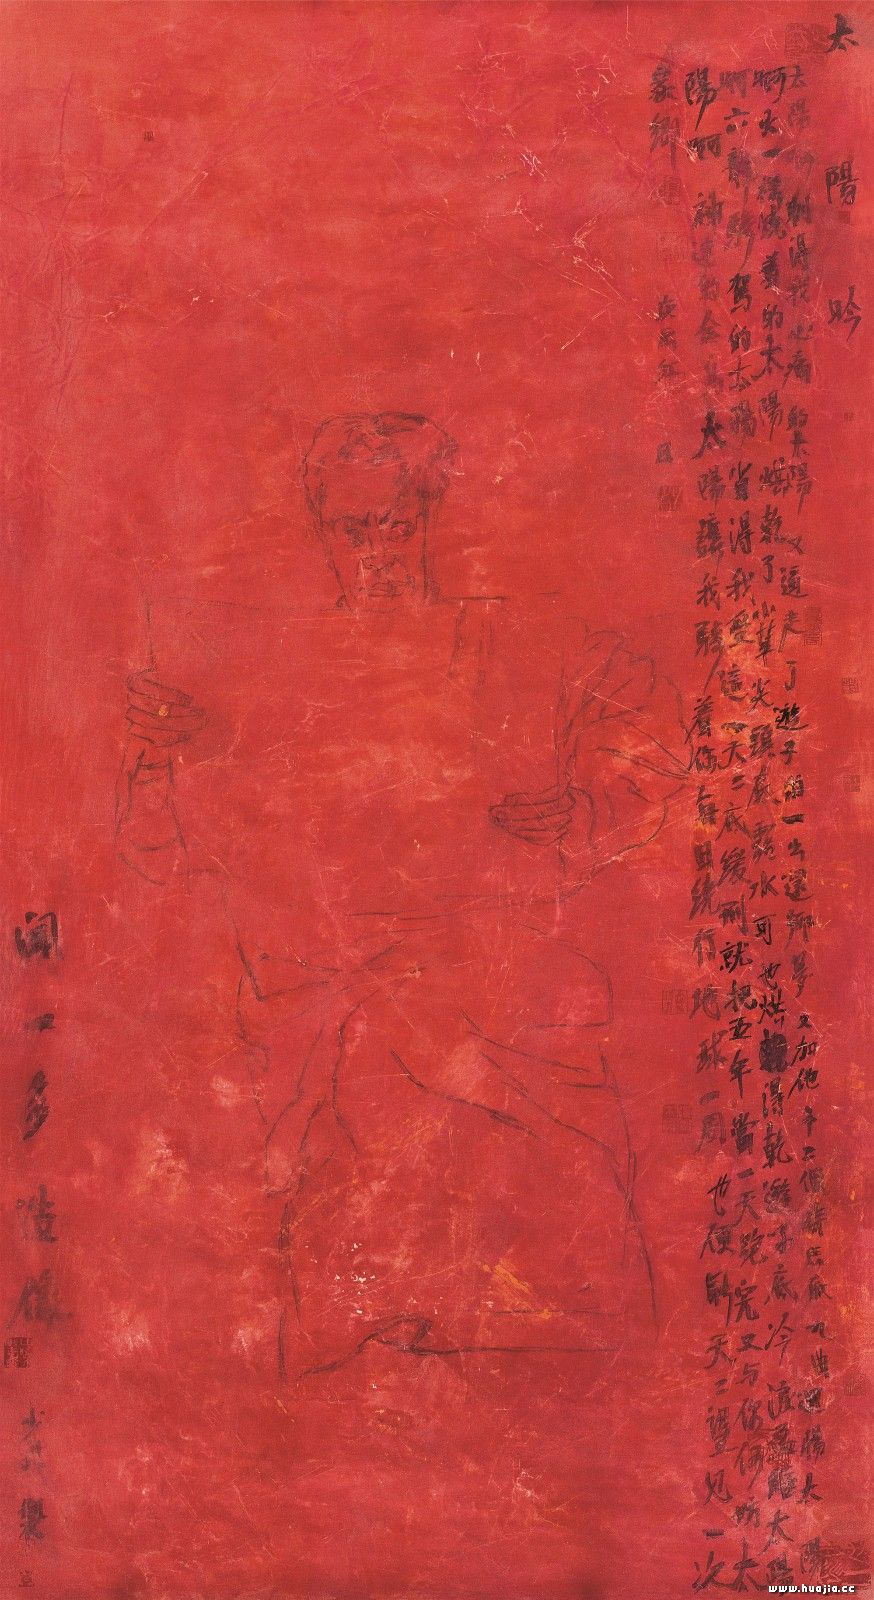 太陽吟
太陽啊刺得我心痛的太陽又逼走了遊子的一出還鄉夢又加他十二個時辰底九曲迴腸太陽
啊火一樣燒着的太陽烘乾了小草尖頭底露水可也烘得乾遊子底冷淚盈眶太陽
啊六龍驂駕的太陽省得我受這一天二底緩刑就把五年當一天跑完又与你何妨太
陽啊神速的金烏太陽讓我騎着你每日繞行地球一周也便能天二望見一次
家鄉
闻一多造像
www.huajia.cc